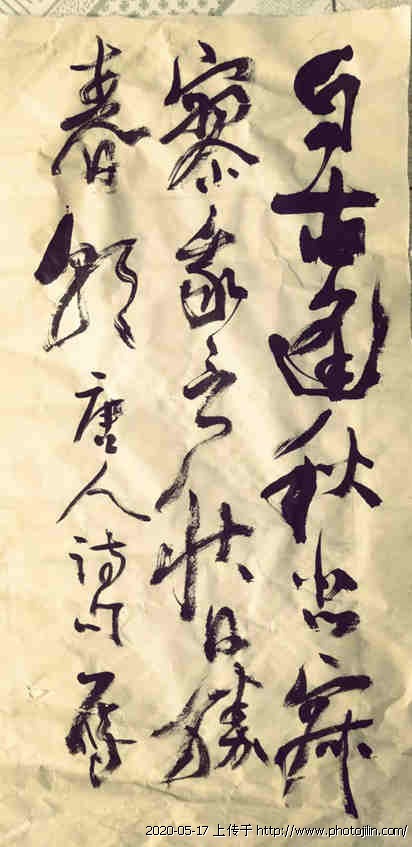 自古逢秋悲寂
寥我言秋日勝
春朝唐人詩句
2020-05-17 上传于 http://www.photojilin.com/